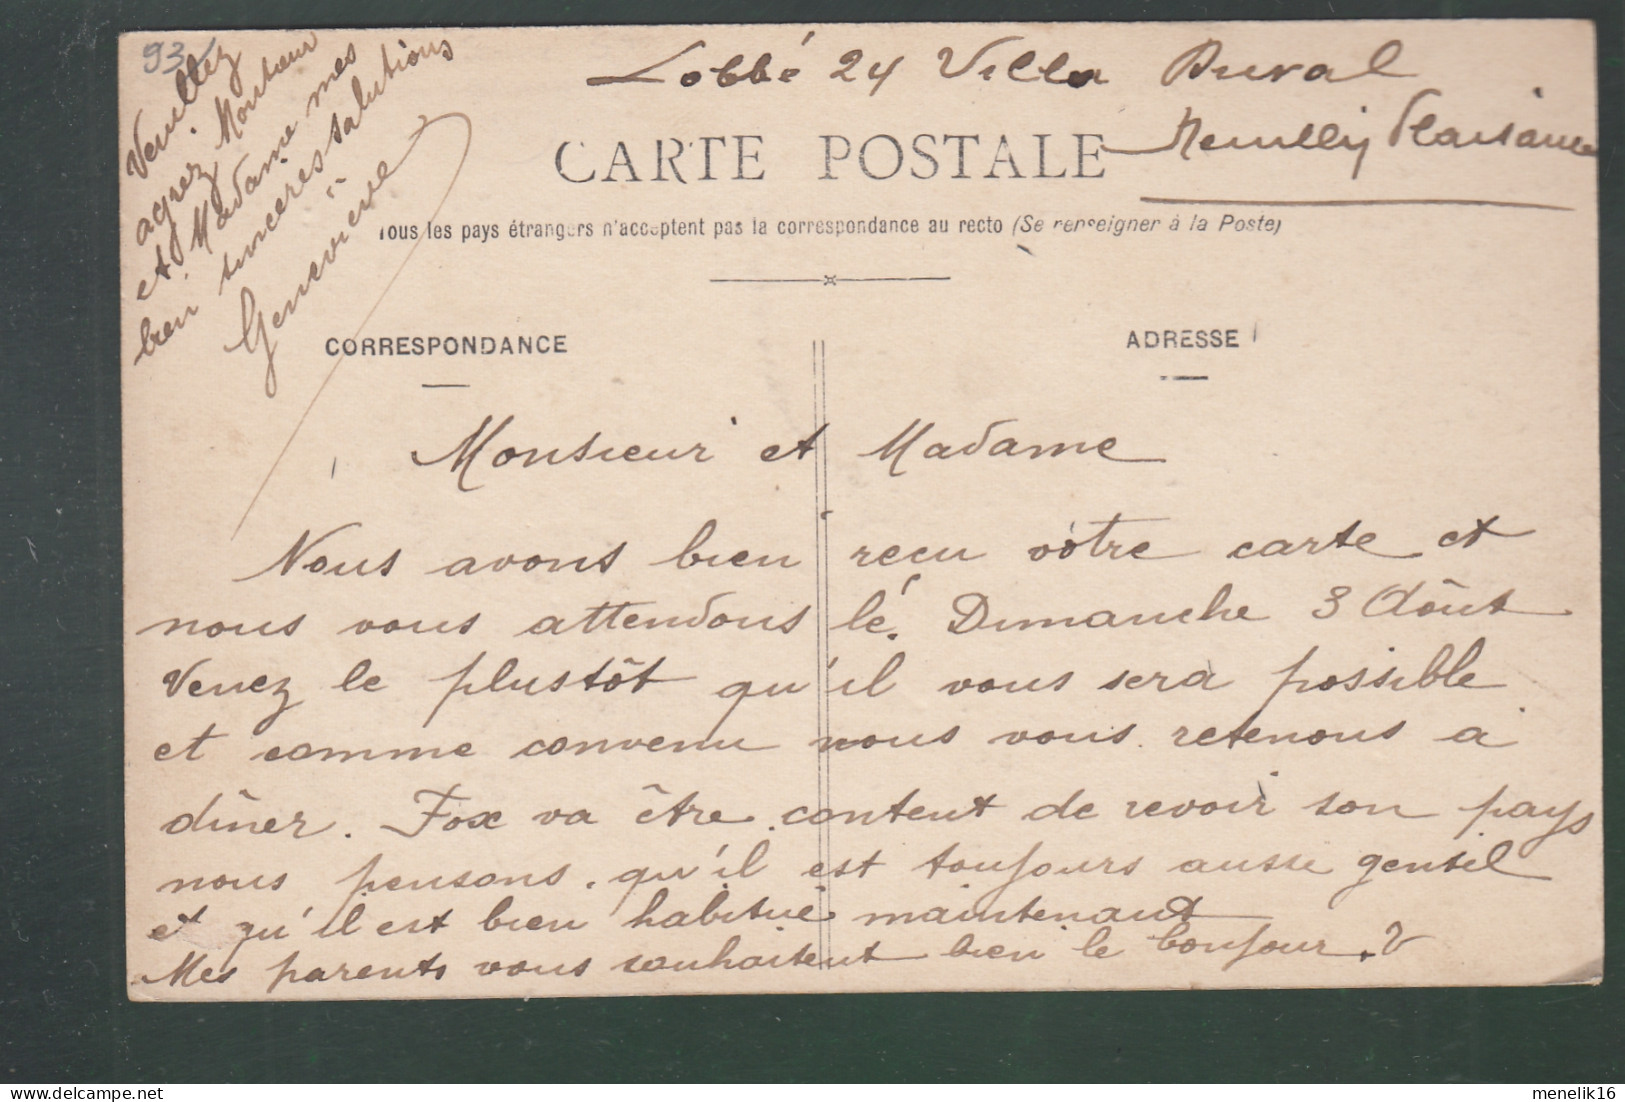 93
Lobbé 24 Villa Duval
Neuilly Plaisance
CARTE POSTALE
Tous les pays étrangers n'acceptent pas la correspondance au recto (Se renseigner à la Poste)
CORRESPONDANCE
ADRESSE
Monsieur et Madame
Nous avons bien recu vôtre carte et
nous vous attendons lé. Dimanche 3 Aôut
Venez le plustôt qu'il vous sera possible
et comme convenu nous vous retenons a
dîner. Fox va être content de revoir son pays
nous pensons qu'il est toujours aussi gentil
et qu'il est bien habitué maintenant
Mes parents vous souhaitent bien le bonjour. V
Veuillez
agrez Monsieur
et Madame mes
bien sincères salutions
Geneviève
delcampe.net
menelik16